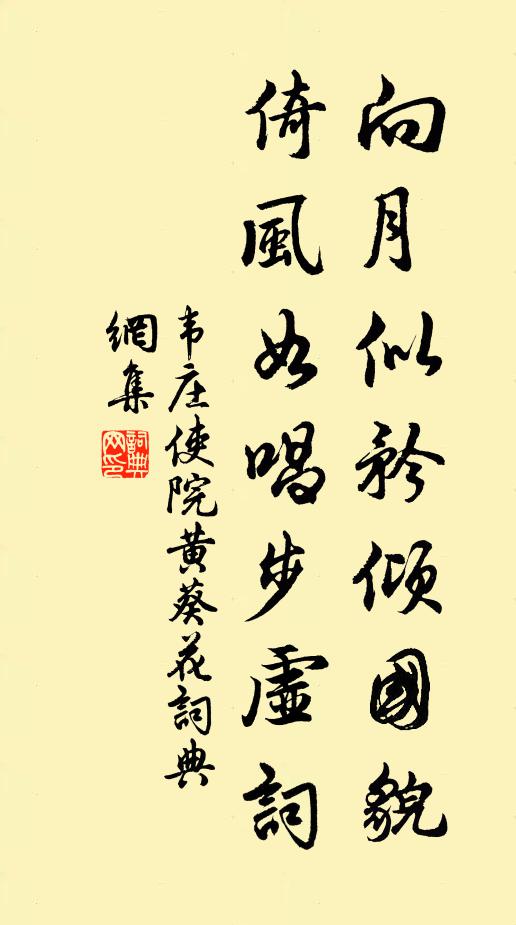 向月似矜傾國貌
倚風如唱步虛詞
韦庄使院黃葵花詞典
網集
詞典
网印